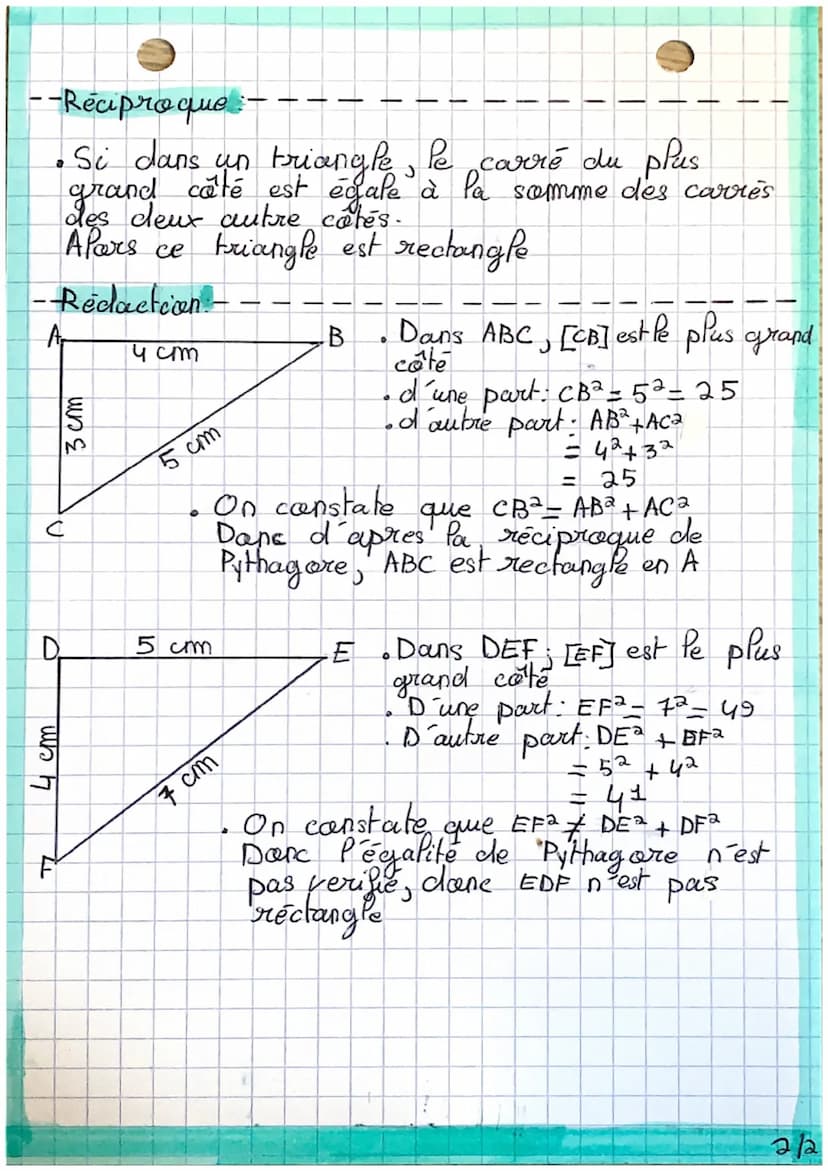 --Réciproque:
• Si dans un triangle, le carré du plus
grand côté est égale à la somme des carrés
des deux autre côtés.
Alors ce triangle est rectangle
--Rédaction:
A
4 cm
B
3 cm
5 cm
C
• Dans ABC, [CB] est le plus grand
côté
• d'une part: CB² = 5² = 25
• d'autre part: AB² + AC²
= 4² + 3²
= 25
• On constate que CB² = AB² + AC²
Donc d'apres la réciproque de
Pythagore, ABC est rectangle en A
D
5 cm
E
4 cm
7 cm
F
• Dans DEF; [EF] est le plus
grand côté
• D'une part: EF² = 7² = 49
• D'autre part: DE² + DF²
= 5² + 4²
= 41
• On constate que EF² ≠ DE² + DF²
Donc l'égalité de Pythagore n'est
pas verifié, donc EDF n'est pas
réctangle
2/2